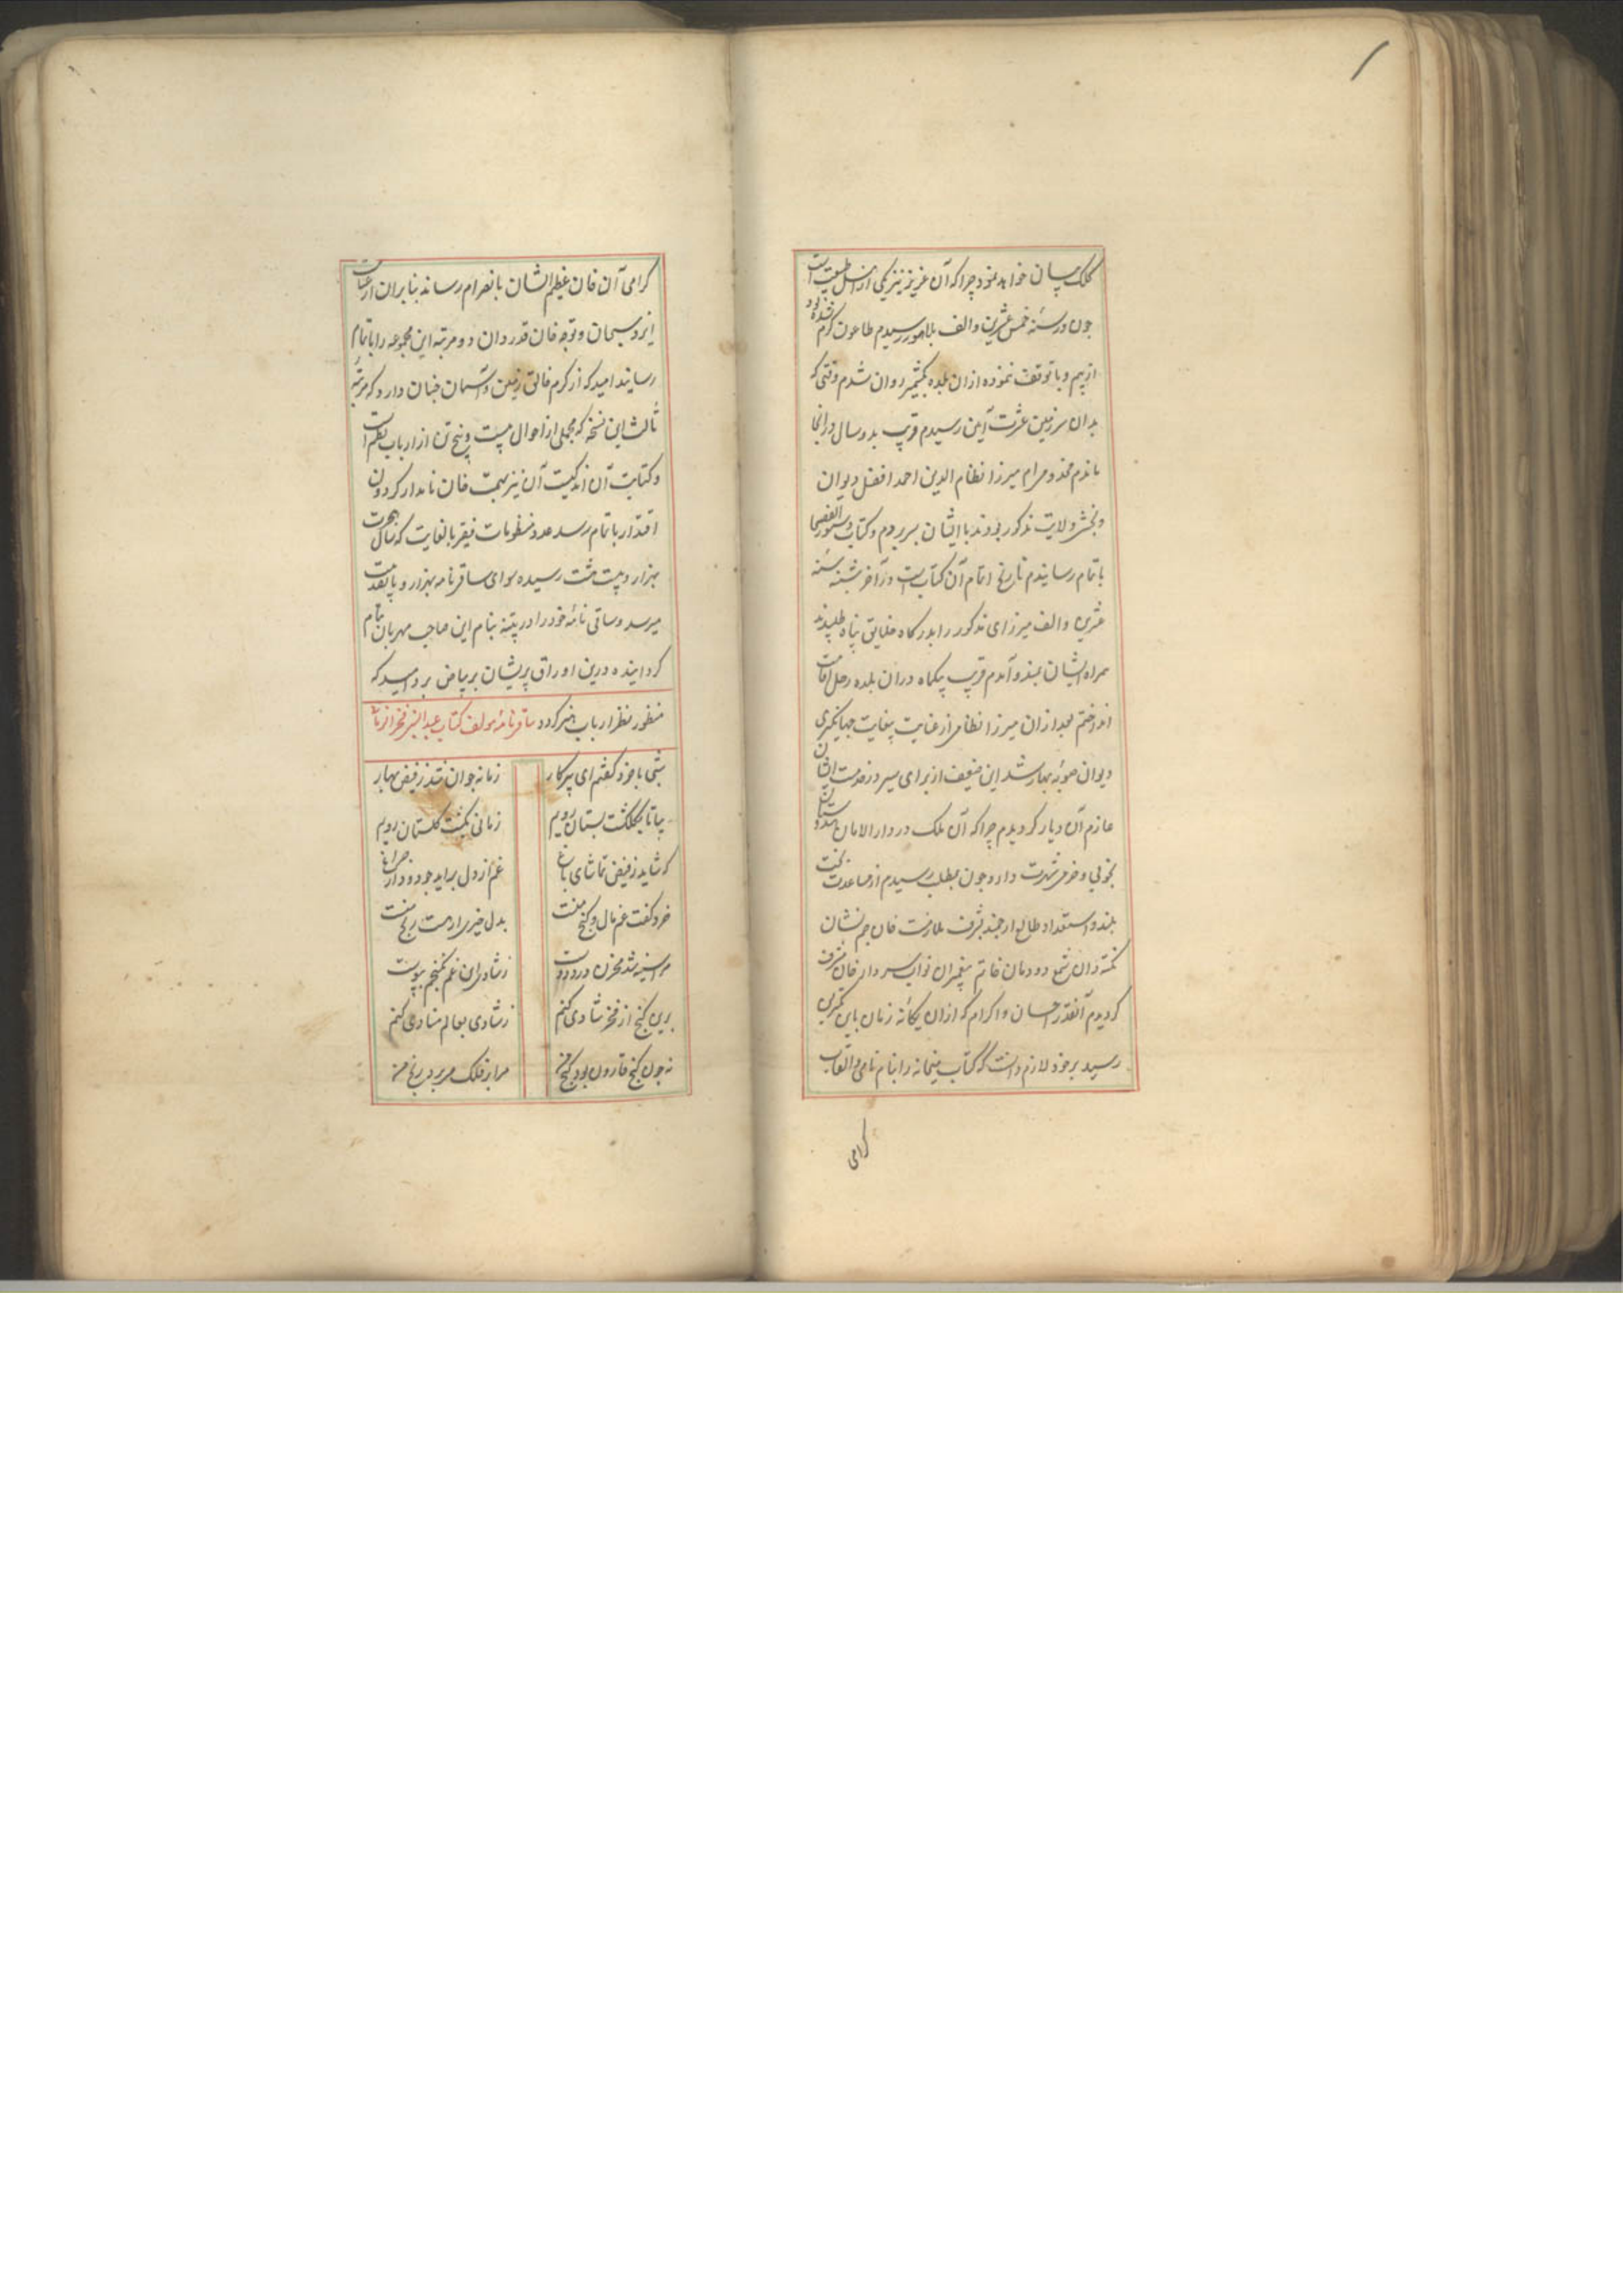 کلک بیان خواهد نمود چرا که آن عزیز نیز یکی از اهل طبیعت است
چون در سنه خمس عشرین و الف بلاهور رسیدم طاعون گرم شده بود
از بیم وبا توقف ننموده ازان بلده بکشمیر روان شدم وقتی که
بدان سرزمین عشرت آیین رسیدم قریب بدو سال در آنجا
ماندم مخدوم رام میرزا نظام الدین احمد افضل دیوان
و بخشی ولایت مذکور بودند با ایشان بسر بردم و کتاب دستور الفصحا
باتمام رسانیدم تاریخ اتمام آن کتابست در آخر سنه
عشرین و الف میرزای مذکور را بدرگاه خلایق پناه طلبیدند
همراه ایشان بمندو آمدم قریب یکماه دران بلده رحل اقامت
انداختم بعد ازان میرزا نظامی از عنایت بیغایت جهانگیری
دیوان صوبه بهار شد این ضعیف از برای سیر در خدمت ایشان
عازم آن دیار گردیدم چرا که آن ملک در دار الامان هندوستان
بخوبی و خوشی شهرت دارد چون بمطلب رسیدم از مساعدت بخت
بلند و استعداد طالع ارجمند بشرف ملازمت خان جم نشان
نکته دان شمع دودمان خاتم پیغمبران نواب سردار خان مشرف
گردیدم آنقدر احسان و اکرام که ازان یگانه زمان باین کمترین
رسید بر خود لازم دانست که کتاب میخانه را بنام نامی و القاب
گرامی
گرامی آن خان عظیم الشان بانصرام رساند بنا بران از عنایت
ایزد سبحان و توجه خان قدردان دو مرتبه این مجموعه را باتمام
رسانید امید که از کرم خالق زمین و آسمان چنان دارد که مرتبه
ثالث این نسخه که مجملی از احوال بیست و پنج تن از ارباب نظم است
و کتابت آن اندکیست آن نیز بهمت خان نامدار گردون
اقتدار باتمام رسد عدد منظومات فقیر بالغایت که سال هجرت
بهزار و بیست هشت رسیده سوای ساقی نامه بهزار و پانصد بیت
میرسد و ساقی نامه خود را در پتنه بنام این صاحب مهربان تمام
گردانیده درین اوراق پریشان بر بیاض برد امید که
منظور نظر ارباب هنر گردد ساقی نامه مولف کتاب عبد النبی فخر الزمانی
شبی با خرد گفتم ای پیر کار زمانه جوان شد ز فیض بهار
بیا تا بگلگشت بستان رویم زمانی بگشت گلستان رویم
که شاید ز فیض تماشای باغ غم از دل براید چو دود از چراغ
خرد گفت غم مال و گنج منست بدل خرمی رادمت رنج منست
مرا سینه شد مخزن درد دوست ز شادی این غم نگنجم بپوست
برین گنج از فخر شادی کنم ز شادی بعالم منادی کنم
نه چون گنج قارون بود گنج من مرا بر فلک میبرد رنج من